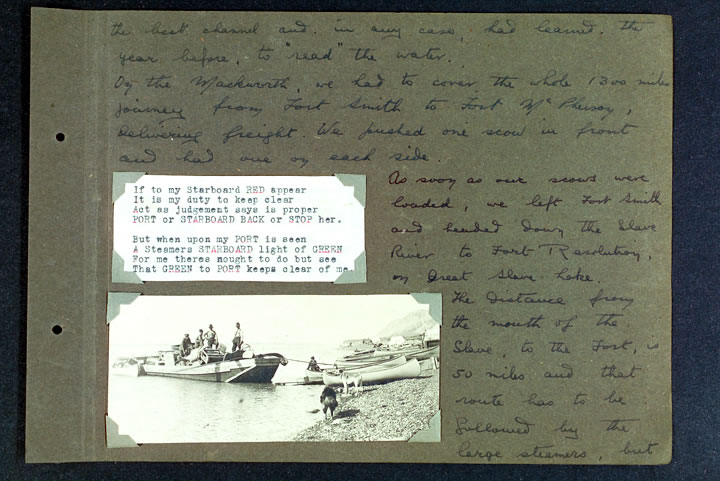 the best channel and, in any case, had learned, the
year before, to "read" the water.
On the Mackworth, we had to cover the whole 1300 miles
journey from Fort Smith to Fort McPherson,
delivering freight. We pushed one scow in front
and had one on each side.
If to my Starboard RED appear
It is my duty to keep clear
Act as judgement says is proper
PORT or STARBOARD BACK or STOP her.
But when upon my PORT is seen
A Steamers STARBOARD light of GREEN
For me theres nought to do but see
That GREEN to PORT keeps clear of me.
As soon as our scows were
loaded, we left Fort Smith
and headed down the Slave
River to Fort Resolution,
on Great Slave Lake.
The distance from
the mouth of the
Slave, to the Fort, is
50 miles and that
route has to be
followed by the
large steamers, but